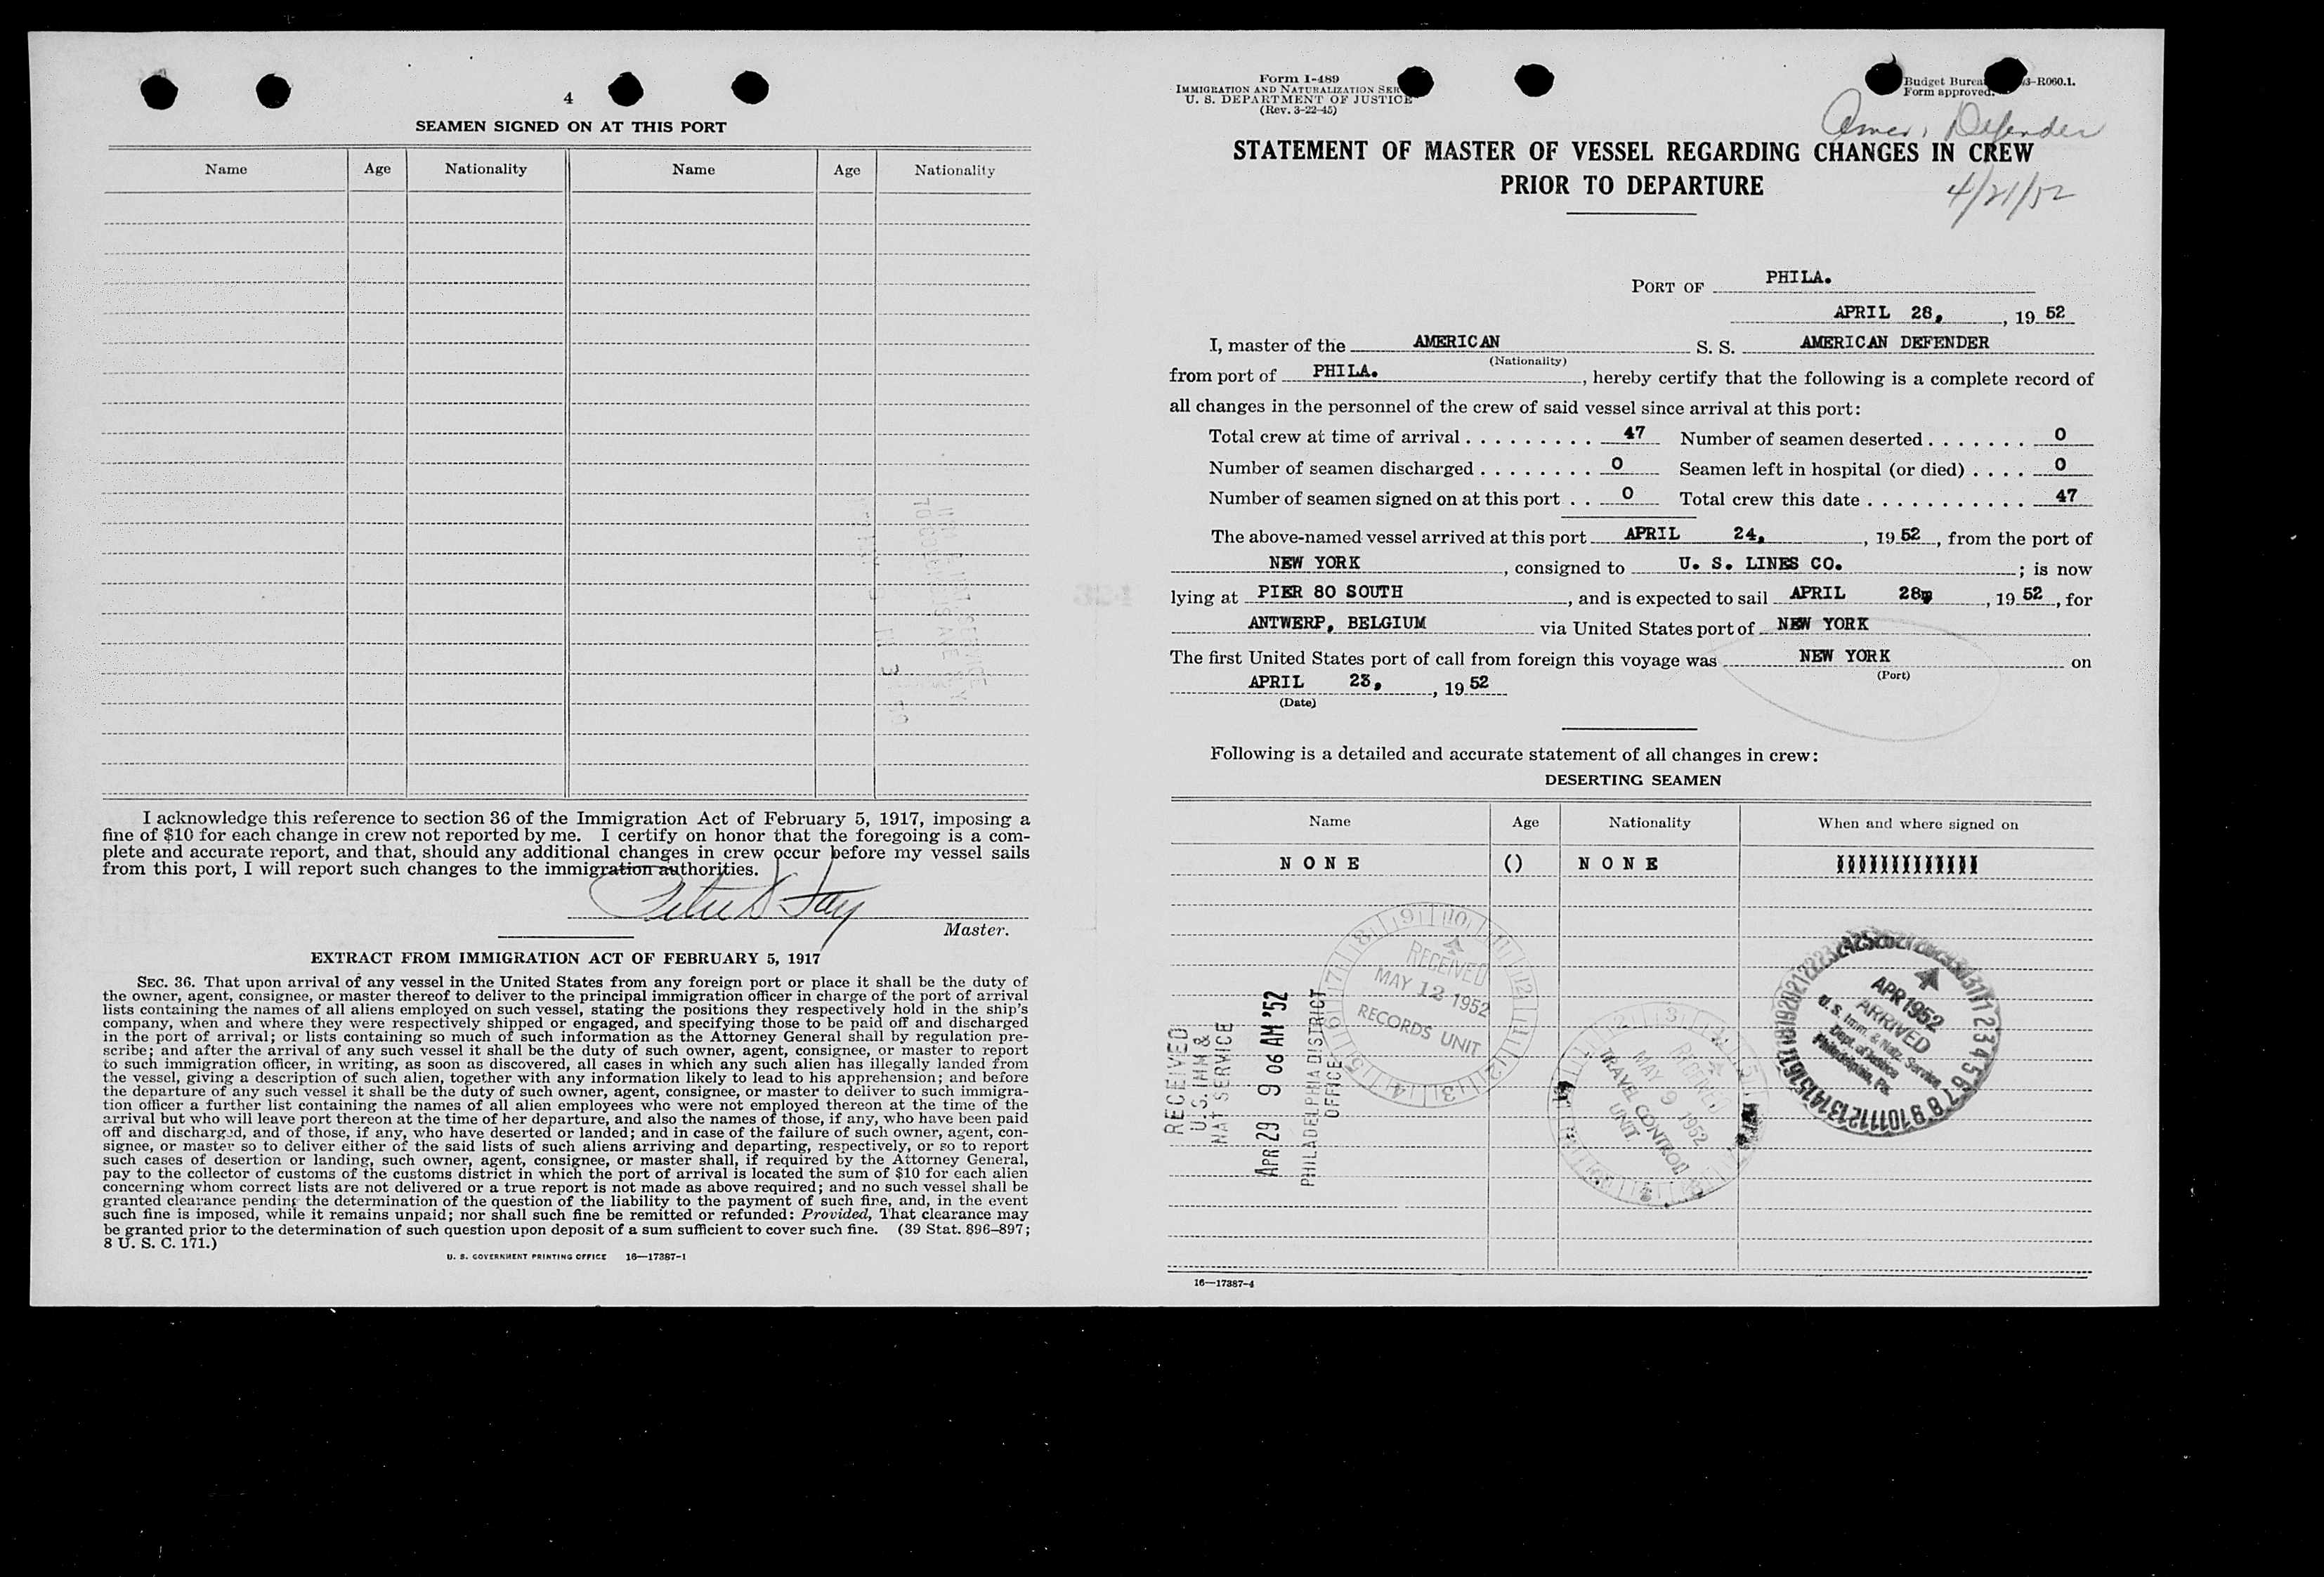 4
SEAMEN SIGNED ON AT THIS PORT
Name Age Nationality Name Age Nationality
I acknowledge this reference to section 36 of the Immigration Act of February 5, 1917, imposing a
fine of $10 for each change in crew not reported by me. I certify on honor that the foregoing is a com-
plete and accurate report, and that, should any additional changes in crew occur before my vessel sails
from this port, I will report such changes to the immigration authorities.
Master.
EXTRACT FROM IMMIGRATION ACT OF FEBRUARY 5, 1917
SEC. 36. That upon arrival of any vessel in the United States from any foreign port or place it shall be the duty of
the owner, agent, consignee, or master thereof to deliver to the principal immigration officer in charge of the port of arrival
lists containing the names of all aliens employed on such vessel, stating the positions they respectively hold in the ship's
company, when and where they were respectively shipped or engaged, and specifying those to be paid off and discharged
in the port of arrival; or lists containing so much of such information as the Attorney General shall by regulation pre-
scribe; and after the arrival of any such vessel it shall be the duty of such owner, agent, consignee, or master to report
to such immigration officer, in writing, as soon as discovered, all cases in which any such alien has illegally landed from
the vessel, giving a description of such alien, together with any information likely to lead to his apprehension; and before
the departure of any such vessel it shall be the duty of such owner, agent, consignee, or master to deliver to such immigra-
tion officer a further list containing the names of all alien employees who were not employed thereon at the time of the
arrival but who will leave port thereon at the time of her departure, and also the names of those, if any, who have been paid
off and discharged, and of those, if any, who have deserted or landed; and in case of the failure of such owner, agent, con-
signee, or master so to deliver either of the said lists of such aliens arriving and departing, respectively, or so to report
such cases of desertion or landing, such owner, agent, consignee, or master shall, if required by the Attorney General,
pay to the collector of customs of the customs district in which the port of arrival is located the sum of $10 for each alien
concerning whom correct lists are not delivered or a true report is not made as above required; and no such vessel shall be
granted clearance pending the determination of the question of the liability to the payment of such fine, and, in the event
such fine is imposed, while it remains unpaid; nor shall such fine be remitted or refunded: Provided, That clearance may
be granted prior to the determination of such question upon deposit of a sum sufficient to cover such fine. (39 Stat. 896-897;
8 U. S. C. 171.)
U. S. GOVERNMENT PRINTING OFFICE 16—17387-1
Form I-489
IMMIGRATION AND NATURALIZATION SER
U. S. DEPARTMENT OF JUSTICE
(Rev. 3-22-45)
Budget Burea 3-R060.1.
Form approved.
Amer. Defender
STATEMENT OF MASTER OF VESSEL REGARDING CHANGES IN CREW
PRIOR TO DEPARTURE
4/21/52
PORT OF PHILA.
APRIL 28, , 19 52
I, master of the AMERICAN S. S. AMERICAN DEFENDER
(Nationality)
from port of PHILA. , hereby certify that the following is a complete record of
all changes in the personnel of the crew of said vessel since arrival at this port:
Total crew at time of arrival . . . . . . . . . 47 Number of seamen deserted . . . . . . . 0
Number of seamen discharged . . . . . . . . 0 Seamen left in hospital (or died) . . . . 0
Number of seamen signed on at this port . . 0 Total crew this date . . . . . . . . . . . 47
The above-named vessel arrived at this port APRIL 24, , 19 52 , from the port of
NEW YORK , consigned to U. S. LINES CO. ; is now
lying at PIER 80 SOUTH , and is expected to sail APRIL 28 , 19 52 , for
ANTWERP, BELGIUM via United States port of NEW YORK
The first United States port of call from foreign this voyage was NEW YORK on
(Port)
APRIL 23, , 19 52
(Date)
Following is a detailed and accurate statement of all changes in crew:
DESERTING SEAMEN
Name Age Nationality When and where signed on
N O N E () N O N E
RECEIVED
MAY 12 1952
RECORDS UNIT
RECEIVED
U.S. IMM &
NAT SERVICE
APR 29 9 06 AM '52
PHILADELPHIA DISTRICT
OFFICE
RECEIVED
MAY 9 1952
TRAVEL CONTROL
UNIT
APR 1952
ARRIVED
U. S. Imm. & Natz. Service
Dept. of Justice
Philadelphia, Pa.
16—17387-4